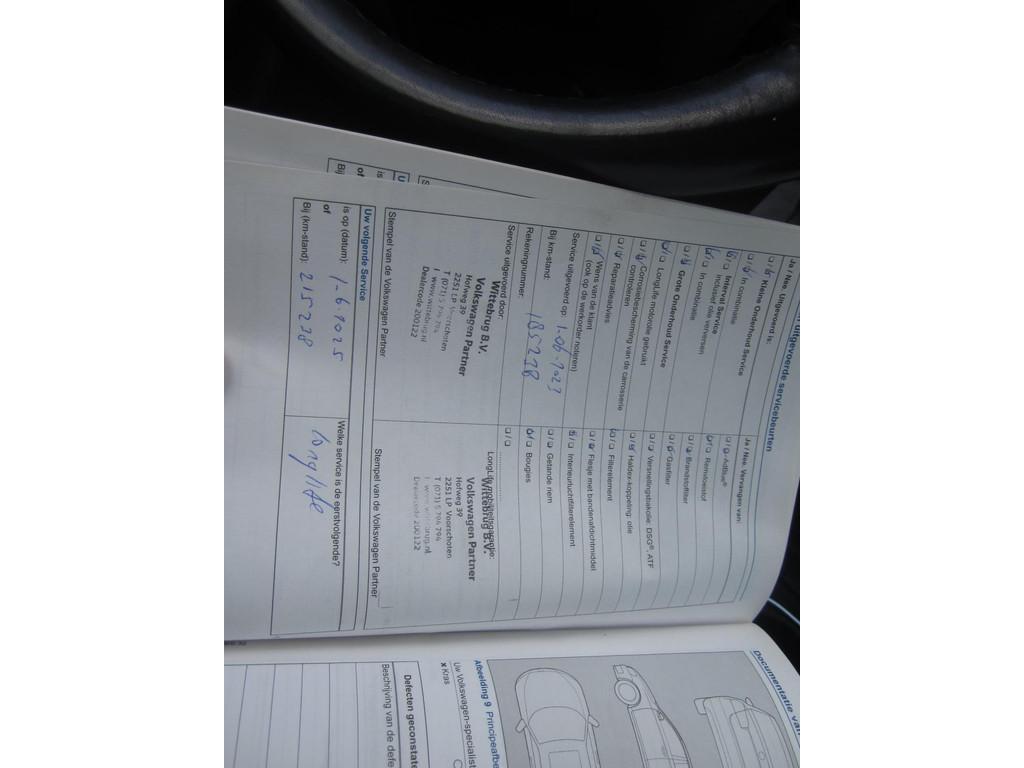 uitgevoerde servicebeurten
Ja / Nee. Uitgevoerd is:
Kleine Onderhoud Service
In combinatie
Interval Service
inclusief olie verversen
In combinatie
Grote Onderhoud Service
LongLife motorolie gebruikt
Corrosiebescherming van de carrosserie
controleren
Reparatieadvies
Wens van de klant
(ook op de werkorder noteren)
Service uitgevoerd op: 1-06-2023
Bij km-stand: 185238
Rekeningnummer:
Service uitgevoerd door:
Wittebrug B.V.
Volkswagen Partner
Hofweg 39
2251 LP Voorschoten
T (071) 5 794 794
I www.wittebrug.nl
Dealercode 200122
Stempel van de Volkswagen Partner
Ja / Nee. Vervangen van:
AdBlue®
Remvloeistof
Brandstoffilter
Gasfilter
Versnellingsbakolie: DSG®, ATF
Haldex-koppeling: olie
Filterelement
Flesje met bandenafdichtmiddel
Interieurluchtfilterelement
Getande riem
Bougies
LongLife mobiliteitsgarantie:
Wittebrug B.V.
Volkswagen Partner
Hofweg 39
2251 LP Voorschoten
T (071) 5 794 794
I www.wittebrug.nl
Dealercode 200122
Stempel van de Volkswagen Partner
Uw volgende Service
is op (datum): 1-6-2025
of
Bij (km-stand): 215238
Welke service is de eerstvolgende?
longlife
Documentatie van
Afbeelding 9 Principeafbe
Uw Volkswagen-specialist
x Kras
Defecten geconstate
Beschrijving van de defe